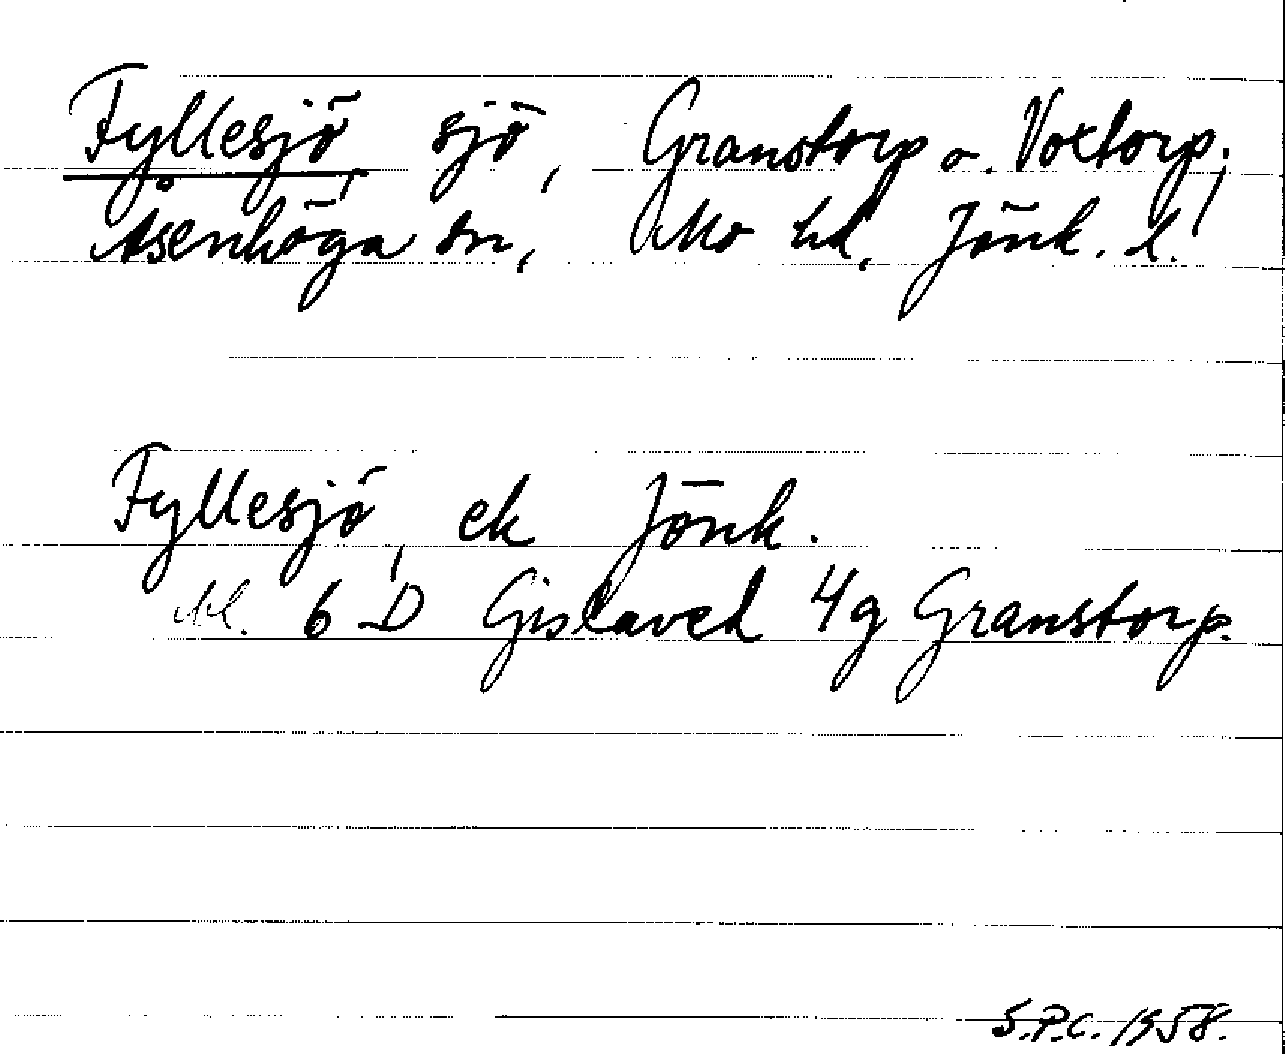 Fyllesjö, sjö, Granstorp o. Voxtorp,
Åsenhöga sn, Mo hd, Jönk. l.
Fyllesjö, ek Jönk.
bl. 6 D Gislaved 4g Granstorp.
S.P.C. 1958.